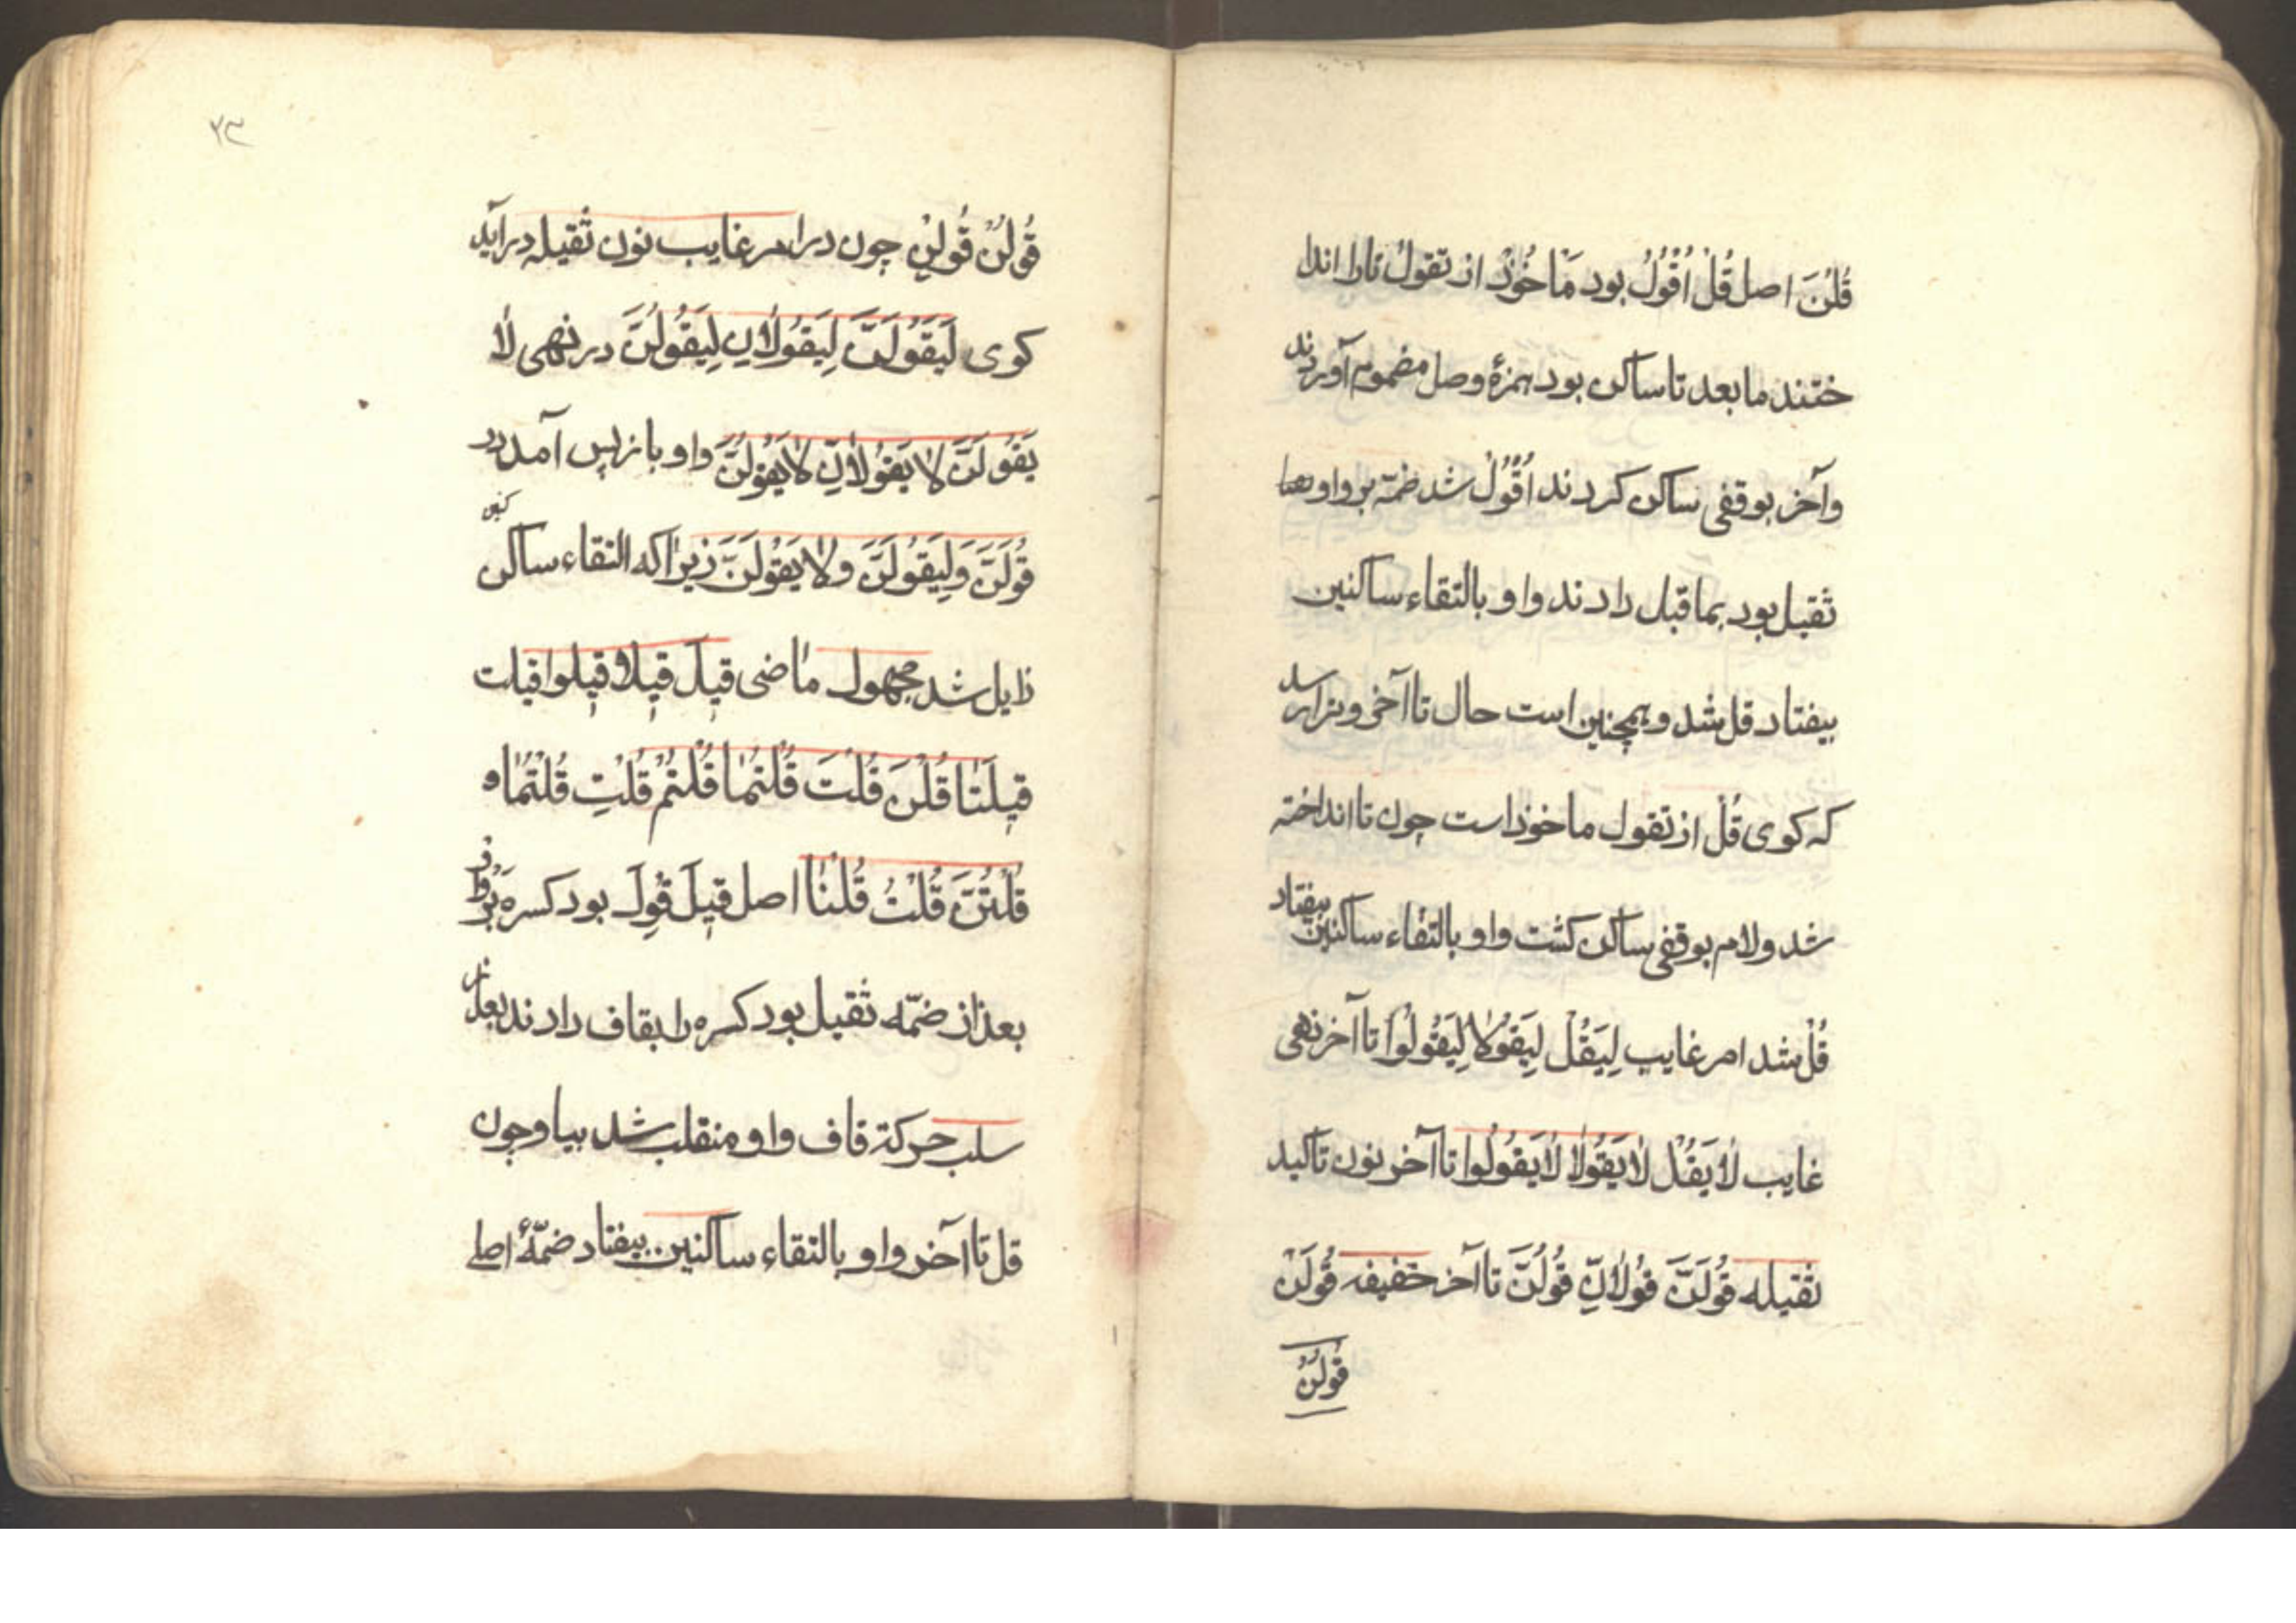 قُلْنَ اصل قُلْ اُقْوُلْ بود مَاخُوْذ از تقول تا را اندا
ختند ما بعد تا ساکن بود همزهٔ وصل مضموم آوردند
و آخر بوقفی ساکن کردند اُقْوُلْ شد ضمّه بر واو
ثقیل بود بما قبل دادند واو بالتقاء ساکنین
بیفتاد قل شد و همچنین است حال تا آخر و ترا رسد
که کوی قُلْ از تقول ماخوذ است چون تا انداخته
شد و لام بوقفی ساکن کشت واو بالتقاء ساکنین بیفتاد
قُلْ شد امر غایب لِیَقُلْ لِیَقُوْلَا لِیَقُوْلُوْا تا آخر نهی
غایب لَا یَقُلْ لَا یَقُوْلَا لَا یَقُوْلُوا تا آخر نون تاکید
ثقیله قُوْلَنَّ قُوْلَانِّ قُوْلُنَّ تا آخر خفیفه قُوْلَنْ
قُولُنْ
۷۳
قُولُنْ قُولِنْ چون در امر غایب نون ثقیله در آید
کوی لِیَقُوْلَنَّ لِیَقُوْلَانِّ لِیَقُوْلُنَّ در نهی لَا
یَقُوْلَنَّ لَا یَقُوْلَانِّ لَا یَقُوْلُنَّ واو باز پس آمد در
قُوْلَنَّ وَلِیَقُوْلَنَّ وَلَا یَقُوْلَنَّ زیرا که التقاء ساکنین
زایل شد مجهول ماضی قیل قیلا قیلوا قیلت
قیلَتَا قُلْنَ قُلْتَ قُلْتُمَا قُلْتُمْ قُلْتِ قُلْتُمَا
قُلْتُنَّ قُلْتُ قُلْنَا اصل قیلَ قُوِلَ بود کسره بَرْ واو
بعد از ضمّه ثقیل بود کسره را بقاف دادند بعد از
سلب حرکة قاف واو منقلب شد بیا و چون
قل تا آخر واو بالتقاء ساکنین بیفتاد ضمّهٔ اصلی